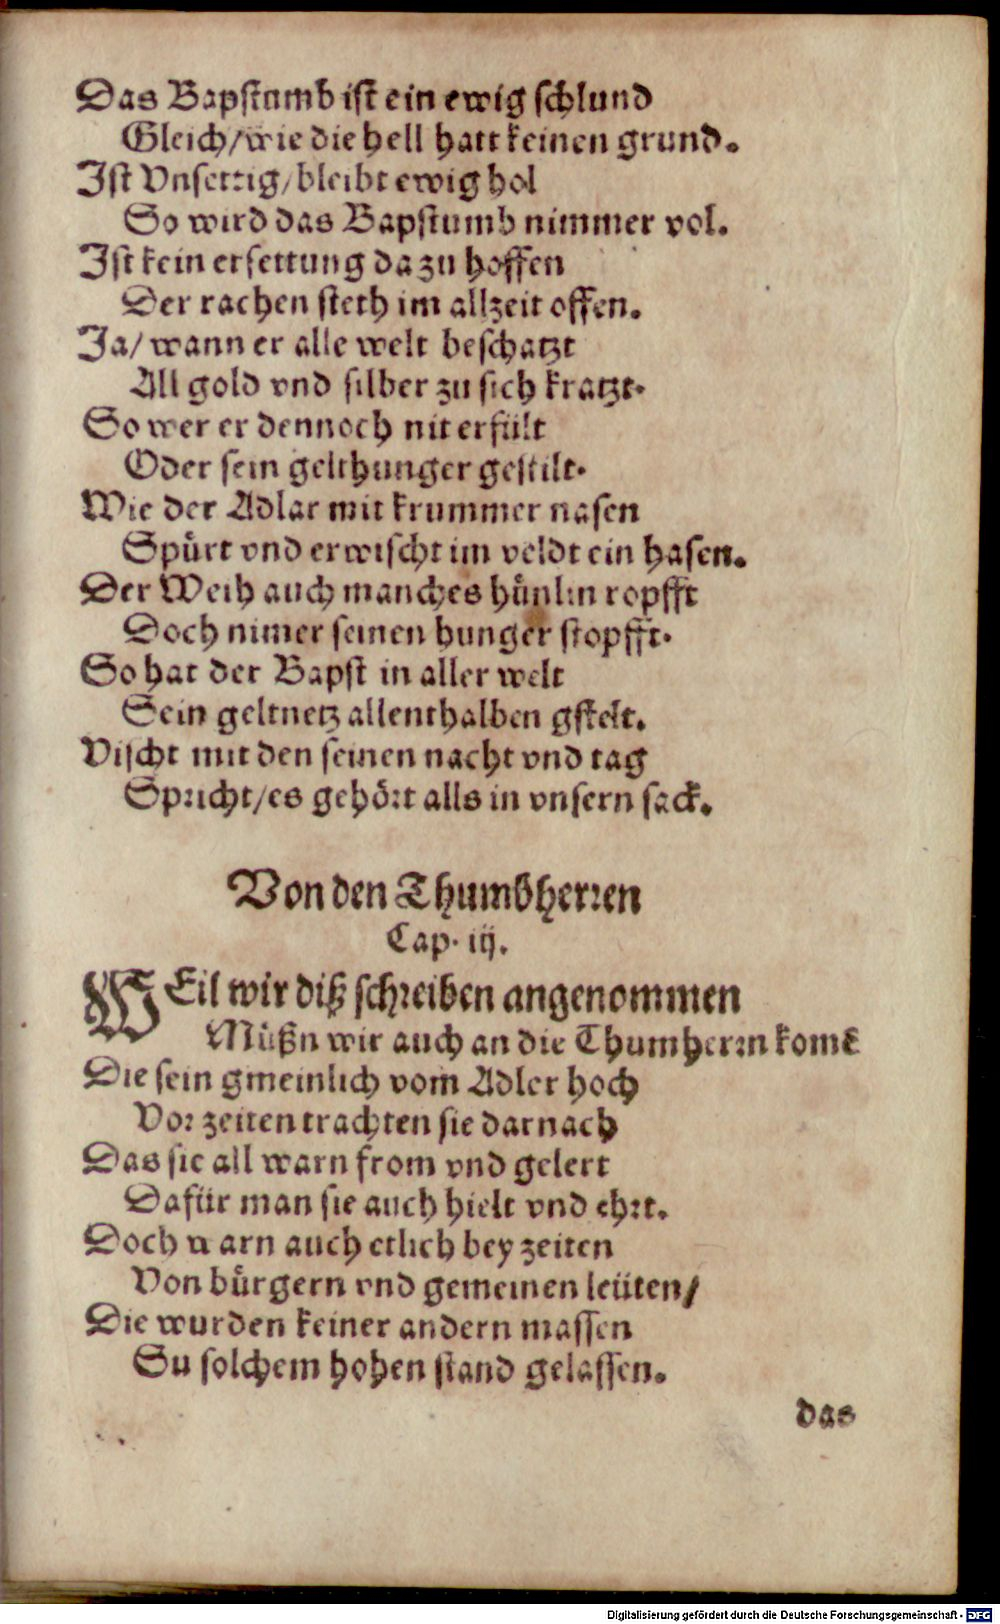 Das Bapstumb ist ein ewig schlund
Gleich/wie die hell hatt keinen grund.
Ist Vnsettig/bleibt ewig hol
So wird das Bapstumb nimmer vol.
Ist kein ersettung da zu hoffen
Der rachen steth im allzeit offen.
Ja/ wann er alle welt beschatzt
All gold vnd silber zu sich kratzt.
So wer er dennoch nit erfült
Oder sein gelthunger gestilt.
Wie der Adlar mit krummer nasen
Spürt vnd erwischt im veldt ein hasen.
Der Weih auch manches hünlin ropfft
Doch nimer seinen hunger stopfft.
So hat der Bapst in aller welt
Sein geltnetz allenthalben gstelt.
Vischt mit den seinen nacht vnd tag
Spricht/es gehört alls in vnsern sack.
Von den Thumbherren
Cap. iij.
WEil wir diß schreiben angenommen
Müßn wir auch an die Thumherrn komē
Die sein gmeinlich vom Adler hoch
Vor zeiten trachten sie darnach
Das sie all warn from vnd gelert
Dafür man sie auch hielt vnd ehrt.
Doch warn auch etlich bey zeiten
Von bürgern vnd gemeinen leüten/
Die wurden keiner andern massen
Su solchem hohen stand gelassen.
das
Digitalisierung gefördert durch die Deutsche Forschungsgemeinschaft - DFG